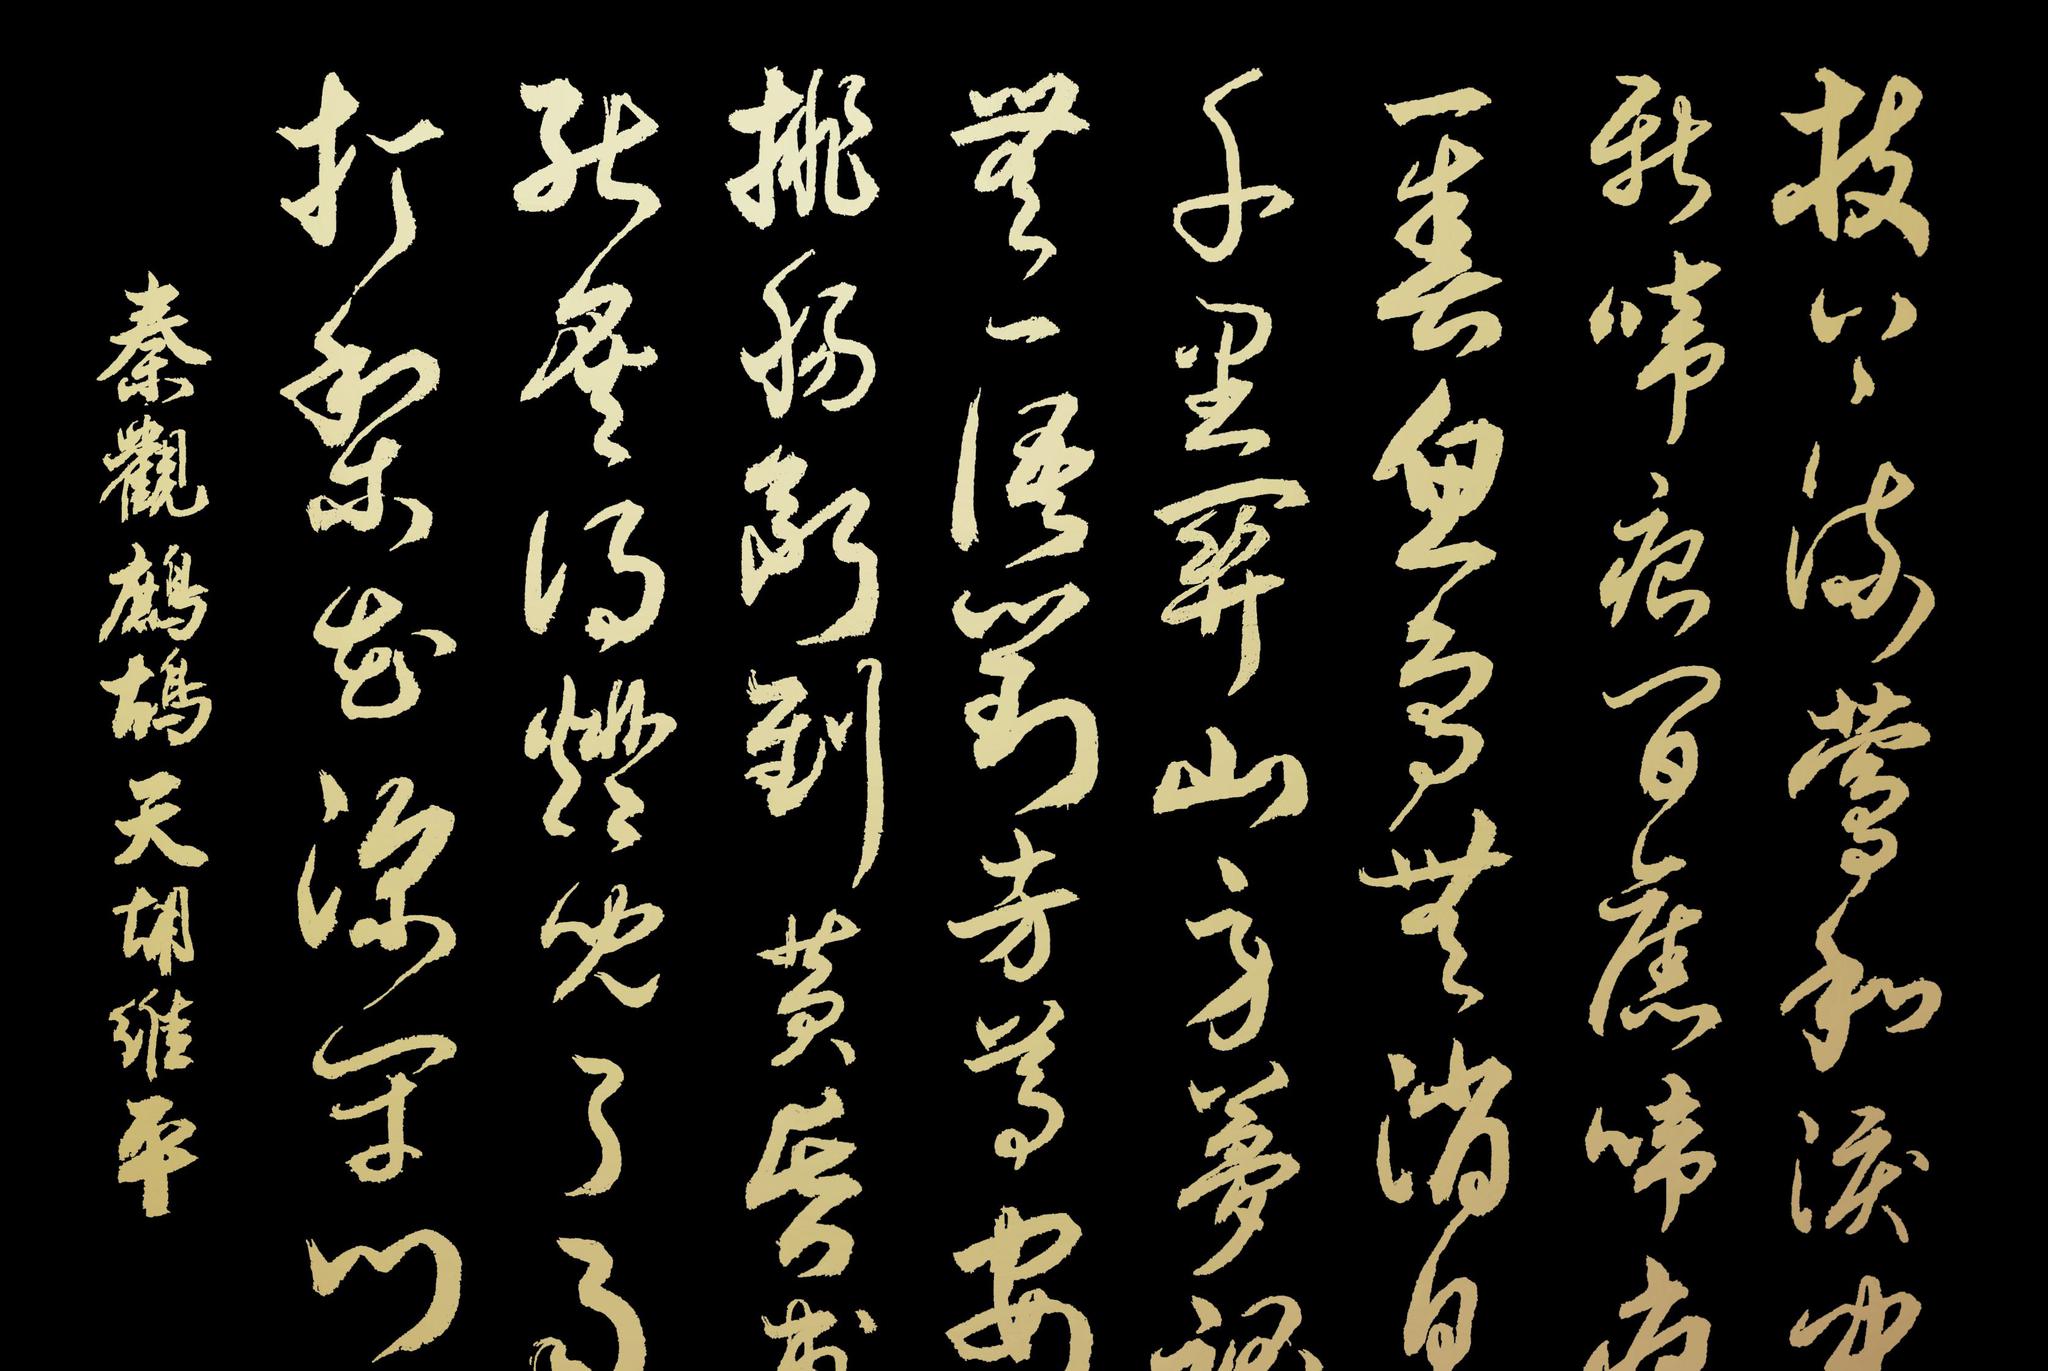 枝上流鶯和淚聞
新啼痕間舊啼痕
一春魚鳥無消息
千里關山勞夢魂
無一語對芳尊安
排腸斷到黃昏甫
能炙得燈兒了雨
打梨花深閉門
秦觀鷓鴣天胡維平